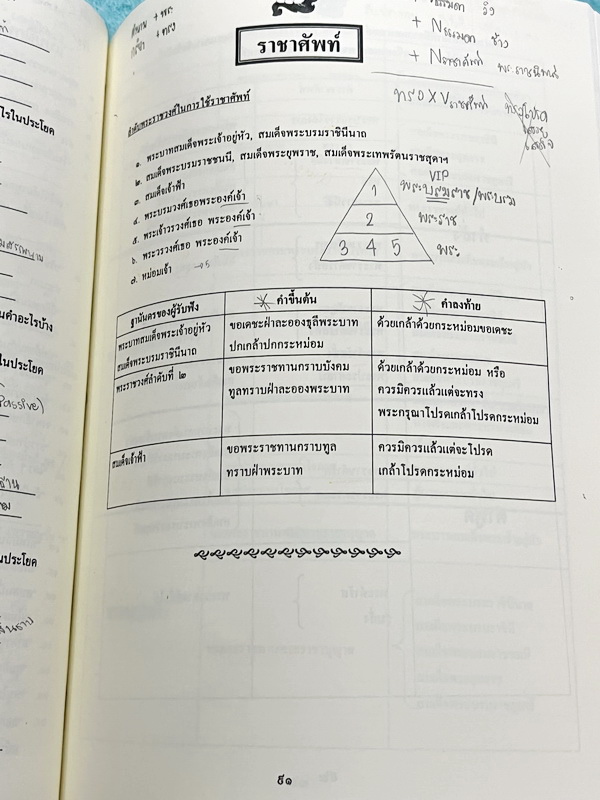 คำนาม + พระ
กริยา + ทรง
+ Nธรรมดา ช้าง
+ Nราชาศัพท์ พระราชนิพนธ์
ทรง X Vราชาศัพท์
ราชาศัพท์
ลำดับพระราชวงศ์ในการใช้ราชาศัพท์
๑. พระบาทสมเด็จพระเจ้าอยู่หัว, สมเด็จพระบรมราชินีนาถ
๒. สมเด็จพระบรมราชชนนี, สมเด็จพระยุพราช, สมเด็จพระเทพรัตนราชสุดาฯ
๓. สมเด็จเจ้าฟ้า
๔. พระบรมวงศ์เธอพระองค์เจ้า
๕. พระเจ้าวรวงศ์เธอ พระองค์เจ้า
๖. พระวรวงศ์เธอ พระองค์เจ้า
๗. หม่อมเจ้า → 5
VIP
1 พระบรมราช/พระบรม
2 พระราช
3 4 5 พระ
ฐานันดรของผู้รับฟัง คำขึ้นต้น คำลงท้าย
พระบาทสมเด็จพระเจ้าอยู่หัว ขอเดชะฝ่าละอองธุลีพระบาท ด้วยเกล้าด้วยกระหม่อมขอเดชะ
สมเด็จพระบรมราชินีนาถ ปกเกล้าปกกระหม่อม
พระราชวงศ์ลำดับที่ ๒ ขอพระราชทานกราบบังคม ด้วยเกล้าด้วยกระหม่อม หรือ
ทูลทราบฝ่าละอองพระบาท ควรมิควรแล้วแต่จะทรง
พระกรุณาโปรดเกล้าโปรดกระหม่อม
สมเด็จเจ้าฟ้า ขอพระราชทานกราบทูล ควรมิควรแล้วแต่จะโปรด
ทราบฝ่าพระบาท เกล้าโปรดกระหม่อม
๕๑